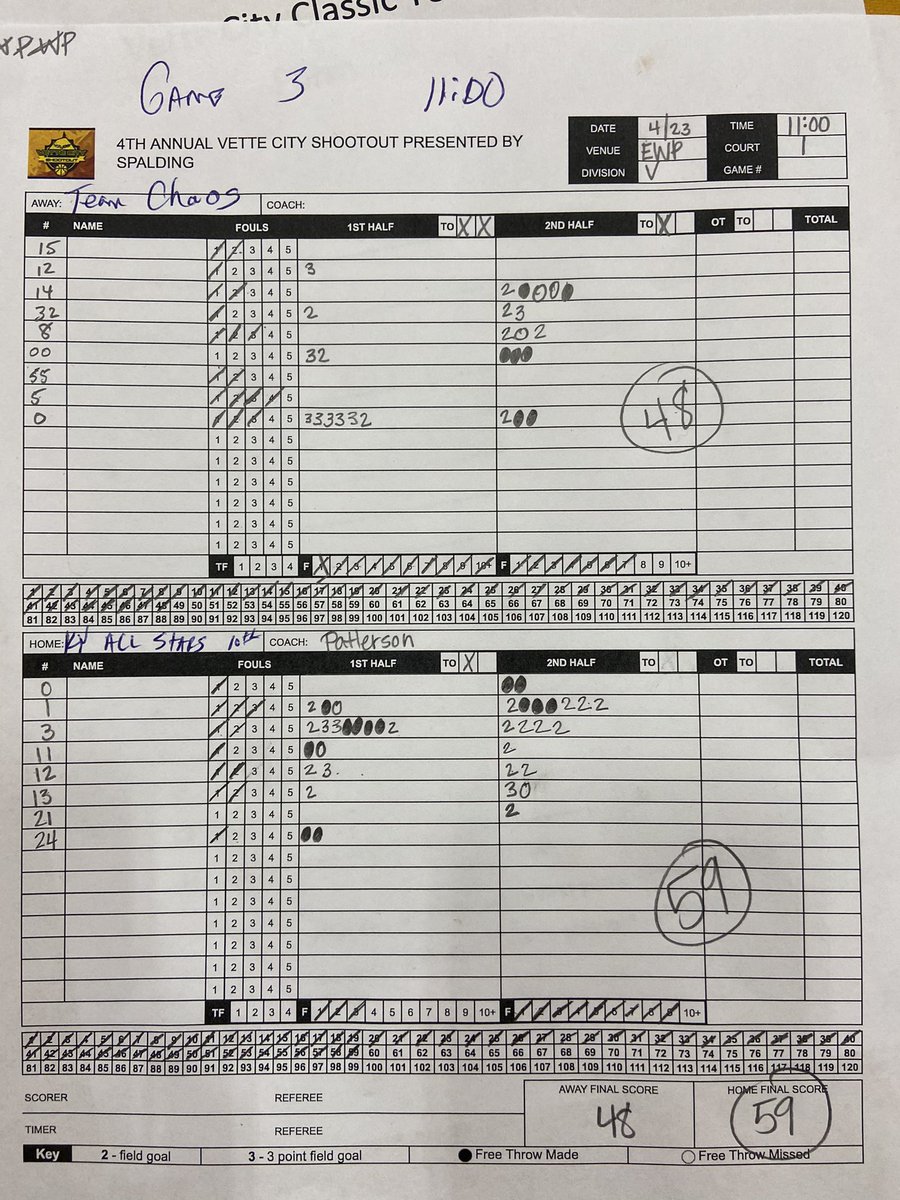 City Classic
GAME 3 11:00
4TH ANNUAL VETTE CITY SHOOTOUT PRESENTED BY
SPALDING
DATE 4/23 TIME 11:00
VENUE EWP COURT 1
DIVISION V GAME #
AWAY: Team Chaos COACH:
# NAME FOULS 1ST HALF TO X X 2ND HALF TO X OT TO TOTAL
15 1 2 3 4 5
12 1 2 3 4 5 3
14 1 2 3 4 5 2●○○●
32 1 2 3 4 5 2 23
8 1 2 3 4 5 202
00 1 2 3 4 5 32 ●●●
55 1 2 3 4 5
5 1 2 3 4 5
0 1 2 3 4 5 333332 2●●
48
1 2 3 4 5
1 2 3 4 5
1 2 3 4 5
1 2 3 4 5
1 2 3 4 5
1 2 3 4 5
TF 1 2 3 4 F 1 2 3 4 5 6 7 8 9 10+ F 1 2 3 4 5 6 7 8 9 10+
1 2 3 4 5 6 7 8 9 10 11 12 13 14 15 16 17 18 19 20 21 22 23 24 25 26 27 28 29 30 31 32 33 34 35 36 37 38 39 40
41 42 43 44 45 46 47 48 49 50 51 52 53 54 55 56 57 58 59 60 61 62 63 64 65 66 67 68 69 70 71 72 73 74 75 76 77 78 79 80
81 82 83 84 85 86 87 88 89 90 91 92 93 94 95 96 97 98 99 100 101 102 103 104 105 106 107 108 109 110 111 112 113 114 115 116 117 118 119 120
HOME: KY ALL STARS 10th COACH: Patterson
# NAME FOULS 1ST HALF TO X 2ND HALF TO OT TO TOTAL
0 1 2 3 4 5 ●●
1 1 2 3 4 5 2●0 2●●●222
3 1 2 3 4 5 233●●●●2 2222
11 1 2 3 4 5 ●● 2
12 1 2 3 4 5 23. 22
13 1 2 3 4 5 2 30
21 1 2 3 4 5 2
24 1 2 3 4 5 ●●
1 2 3 4 5
1 2 3 4 5
59
1 2 3 4 5
1 2 3 4 5
1 2 3 4 5
1 2 3 4 5
1 2 3 4 5
TF 1 2 3 4 F 1 2 3 4 5 6 7 8 9 10+ F 1 2 3 4 5 6 7 8 9 10+
1 2 3 4 5 6 7 8 9 10 11 12 13 14 15 16 17 18 19 20 21 22 23 24 25 26 27 28 29 30 31 32 33 34 35 36 37 38 39 40
41 42 43 44 45 46 47 48 49 50 51 52 53 54 55 56 57 58 59 60 61 62 63 64 65 66 67 68 69 70 71 72 73 74 75 76 77 78 79 80
81 82 83 84 85 86 87 88 89 90 91 92 93 94 95 96 97 98 99 100 101 102 103 104 105 106 107 108 109 110 111 112 113 114 115 116 117 118 119 120
SCORER REFEREE AWAY FINAL SCORE HOME FINAL SCORE
TIMER REFEREE 48 59
Key 2 - field goal 3 - 3 point field goal ● Free Throw Made ○ Free Throw Missed